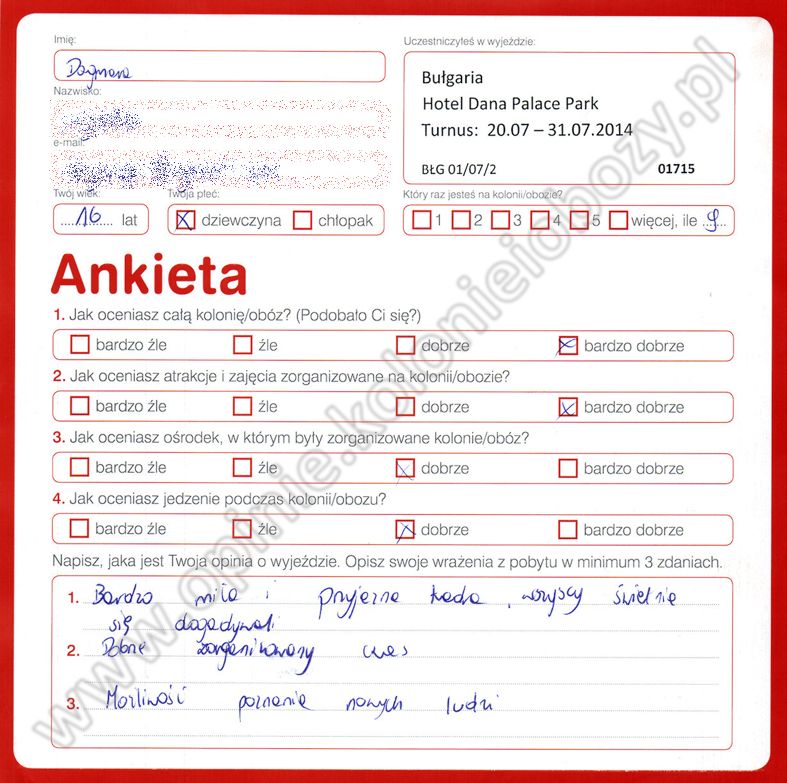 Imię:
Dagmara
Nazwisko:
e-mail:
Twój wiek:
16 lat
Twoja płeć:
dziewczyna chłopak
Uczestniczyłeś w wyjeździe:
Bułgaria
Hotel Dana Palace Park
Turnus: 20.07 – 31.07.2014
BŁG 01/07/2 01715
Który raz jesteś na kolonii/obozie?
1 2 3 4 5 więcej, ile 9
Ankieta
1. Jak oceniasz całą kolonię/obóz? (Podobało Ci się?)
bardzo źle źle dobrze bardzo dobrze
2. Jak oceniasz atrakcje i zajęcia zorganizowane na kolonii/obozie?
bardzo źle źle dobrze bardzo dobrze
3. Jak oceniasz ośrodek, w którym były zorganizowane kolonie/obóz?
bardzo źle źle dobrze bardzo dobrze
4. Jak oceniasz jedzenie podczas kolonii/obozu?
bardzo źle źle dobrze bardzo dobrze
Napisz, jaka jest Twoja opinia o wyjeździe. Opisz swoje wrażenia z pobytu w minimum 3 zdaniach.
1. Bardzo miła i przyjazna kadra, wszyscy świetnie
się dogadywali
2. Dobrze zorganizowany czas
3. Możliwość poznania nowych ludzi
www.opinie.kolonieiobozy.pl